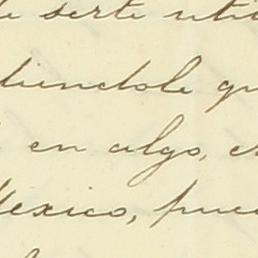 de serte util
diendole qu
en algo, es
Mexico, pued